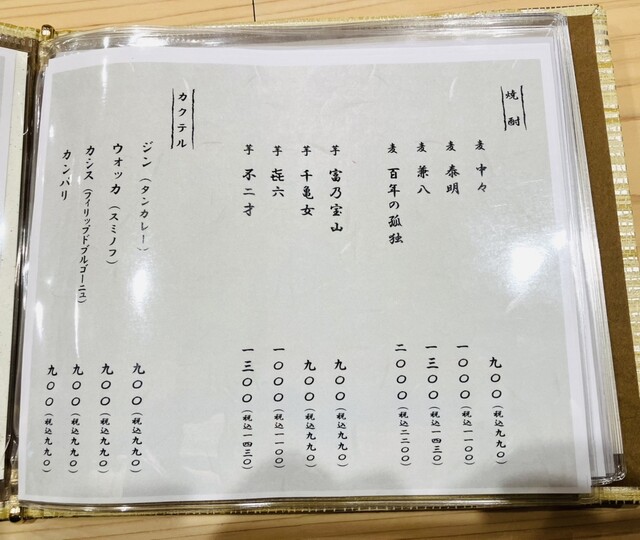 焼酎
麦 中々 九〇〇（税込九九〇）
麦 泰明 一〇〇〇（税込一一〇〇）
麦 兼八 一三〇〇（税込一四三〇）
麦 百年の孤独 二〇〇〇（税込二二〇〇）
芋 富乃宝山 九〇〇（税込九九〇）
芋 千亀女 九〇〇（税込九九〇）
芋 㐂六 一〇〇〇（税込一一〇〇）
芋 不二才 一三〇〇（税込一四三〇）
カクテル
ジン（タンカレー） 九〇〇（税込九九〇）
ウォッカ（スミノフ） 九〇〇（税込九九〇）
カシス（フィリップドブルゴーニュ） 九〇〇（税込九九〇）
カンパリ 九〇〇（税込九九〇）